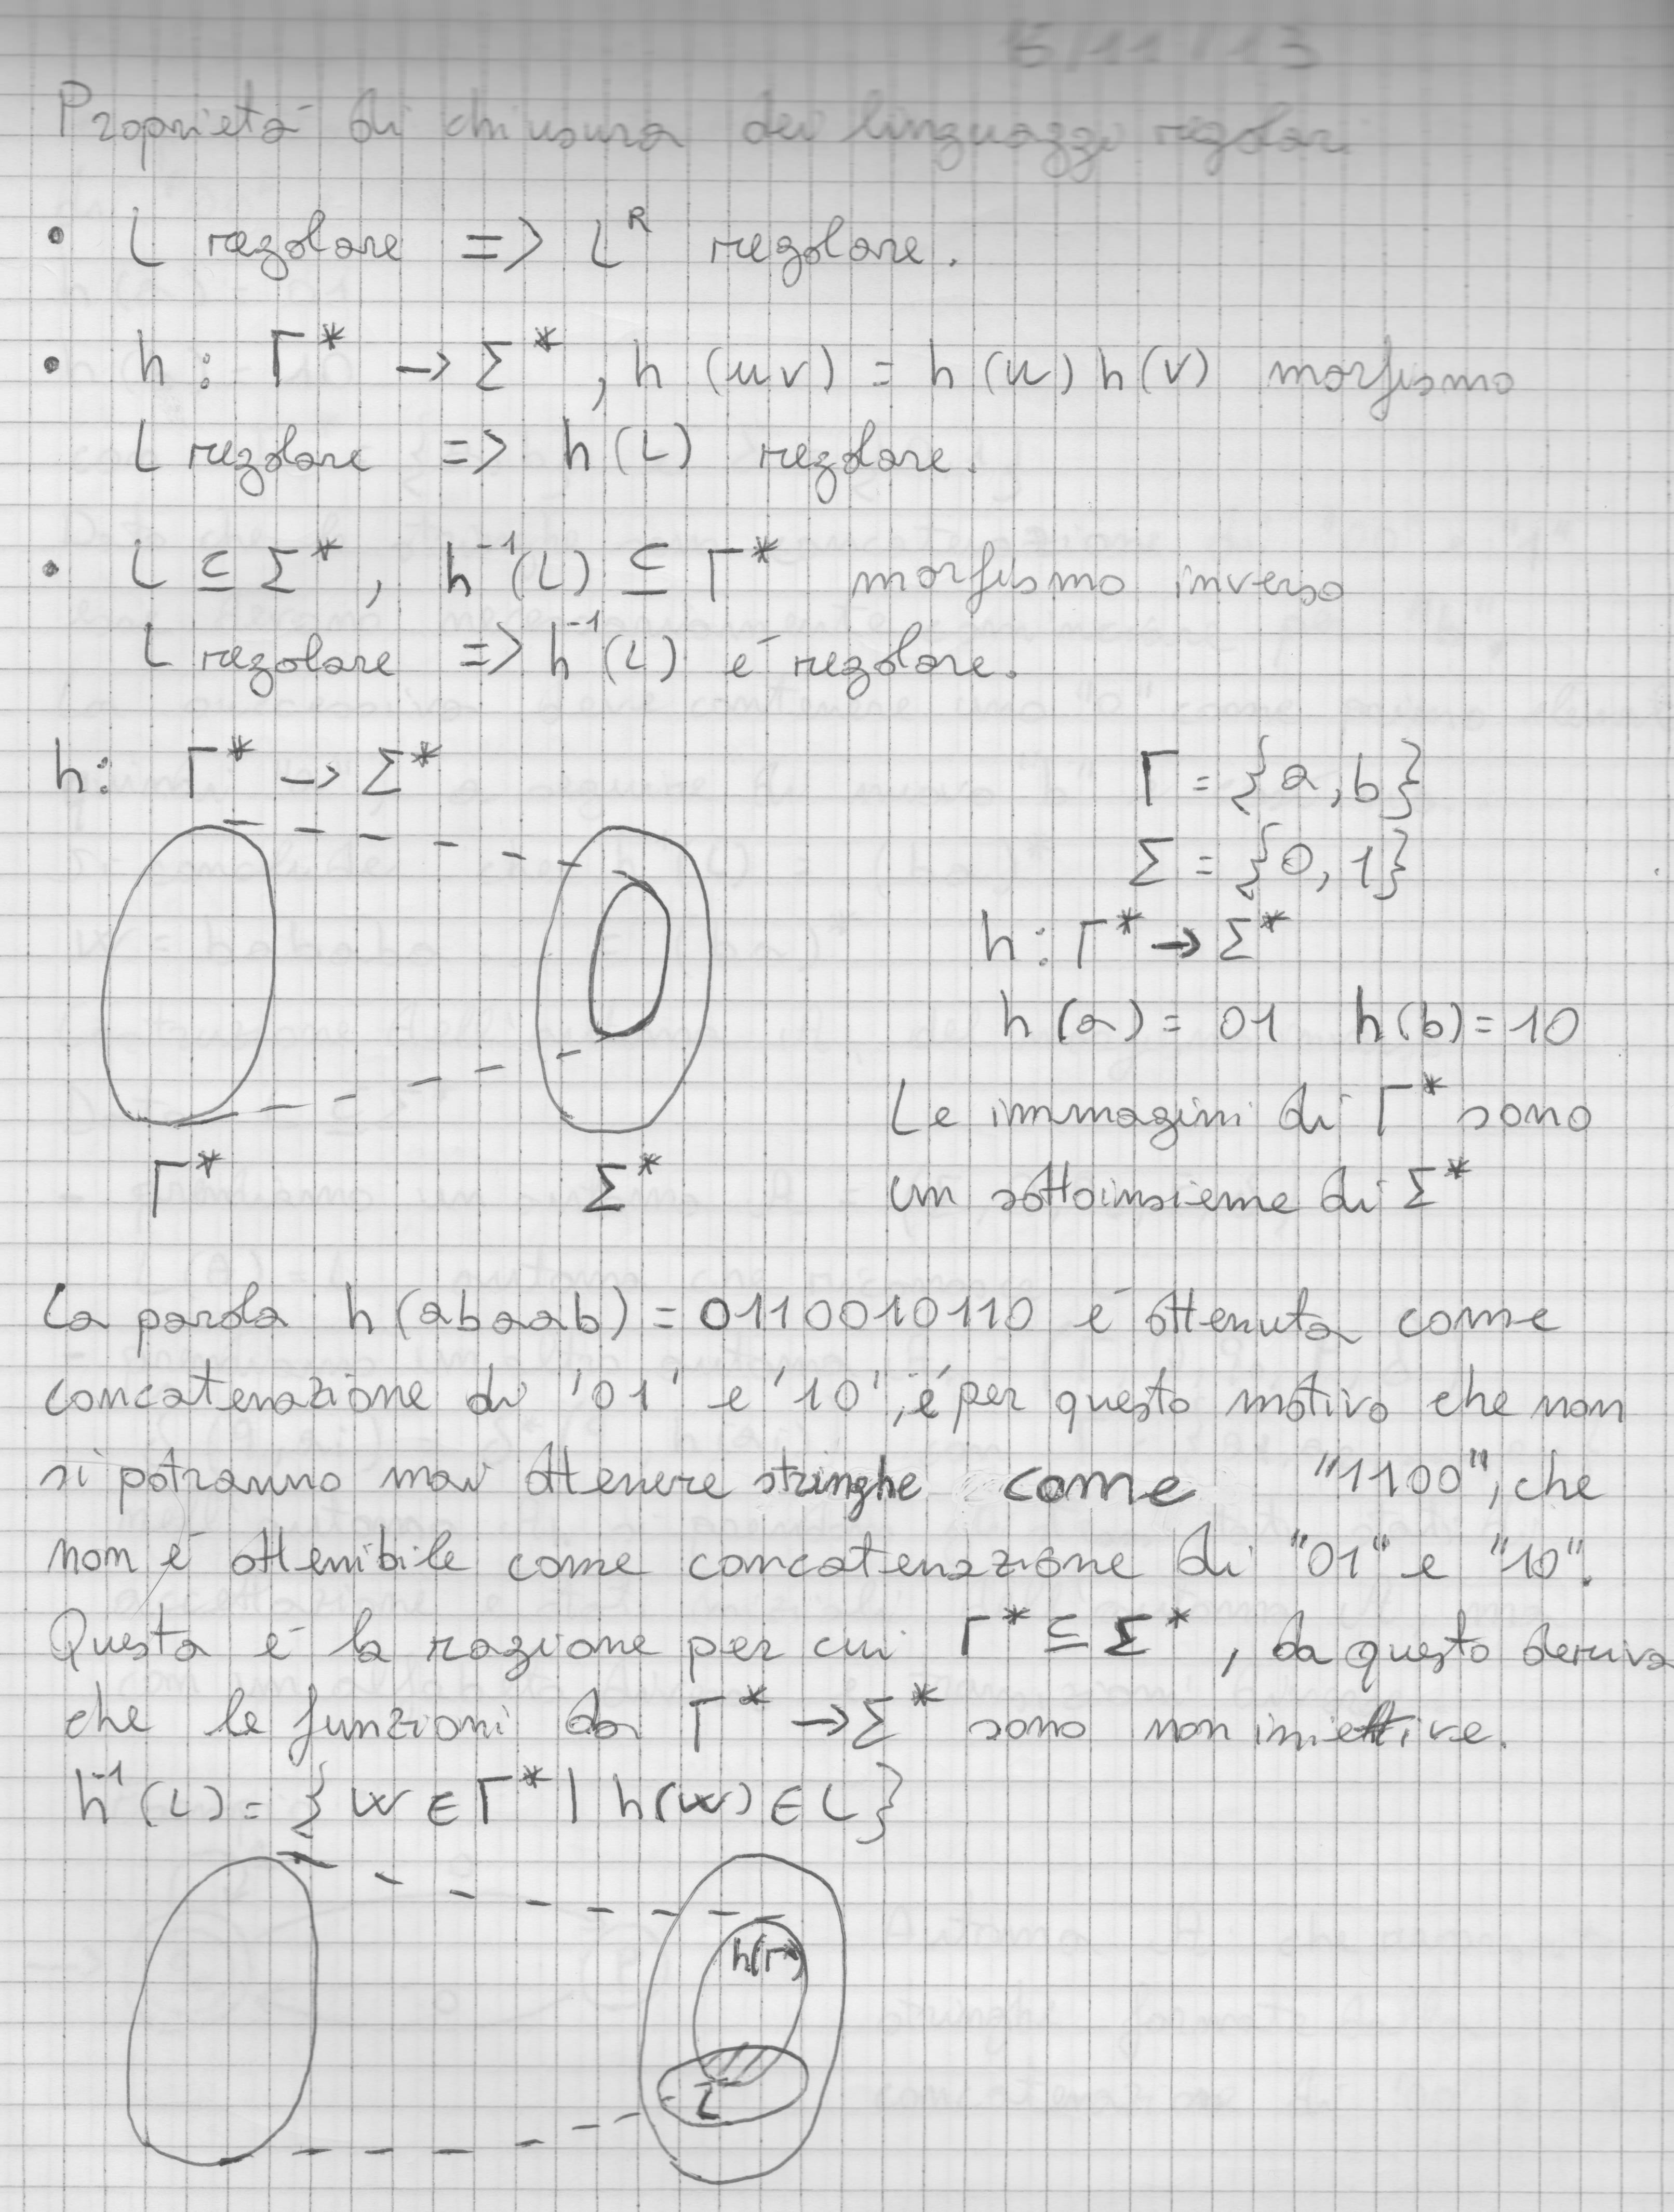 5/11/13
Proprietá di chiusura dei linguaggi regolari
• L regolare => L^R regolare.
• h: Γ* -> Σ*, h(uv) = h(u)h(v) morfismo
L regolare => h(L) regolare.
• L ⊆ Σ*, h⁻¹(L) ⊆ Γ* morfismo inverso
L regolare => h⁻¹(L) é regolare.
h: Γ* -> Σ*
Γ = {a,b}
Σ = {0,1}
h: Γ* -> Σ*
h(a) = 01 h(b) = 10
Le immagini di Γ* sono
un sottoinsieme di Σ*
Γ* Σ*
La parola h(abaab) = 0110010110 é ottenuta come
concatenazione di '01' e '10', é per questo motivo che non
si potranno mai ottenere stringhe come "1100", che
non é ottenibile come concatenazione di "01" e "10".
Questa é la ragione per cui Γ* ⊆ Σ*, da questo deriva
che le funzioni da Γ* -> Σ* sono non iniettive.
h⁻¹(L) = {w ∈ Γ* | h(w) ∈ L}
h(Γ*)
L